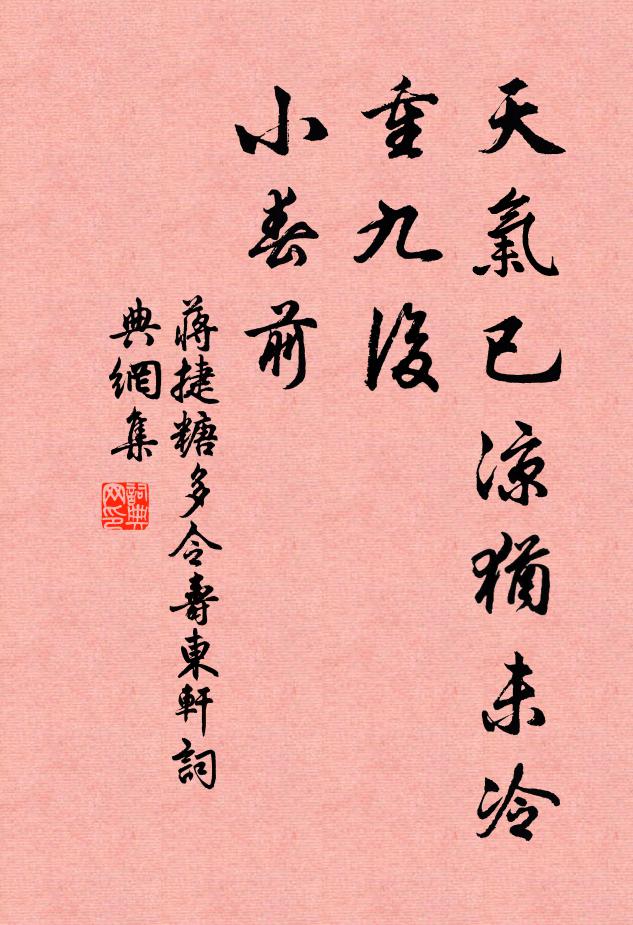 天氣已涼猶未冷
重九後
小春前
蔣捷糖多令壽東軒詞
典網集
詞典
网印